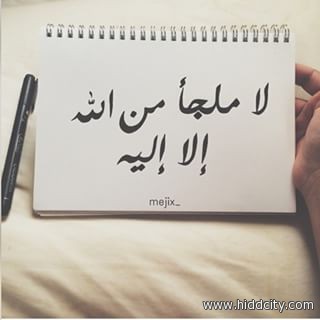 لا ملجأ من الله
إلا إليه
mejix_
www.hiddcity.com